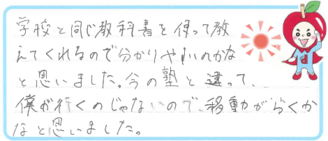 学校と同じ教科書を使って教
えてくれるので分かりやすいのかな
と思いました。今の塾と違って、
僕が行くのじゃないので、移動がらくか
なと思いました。